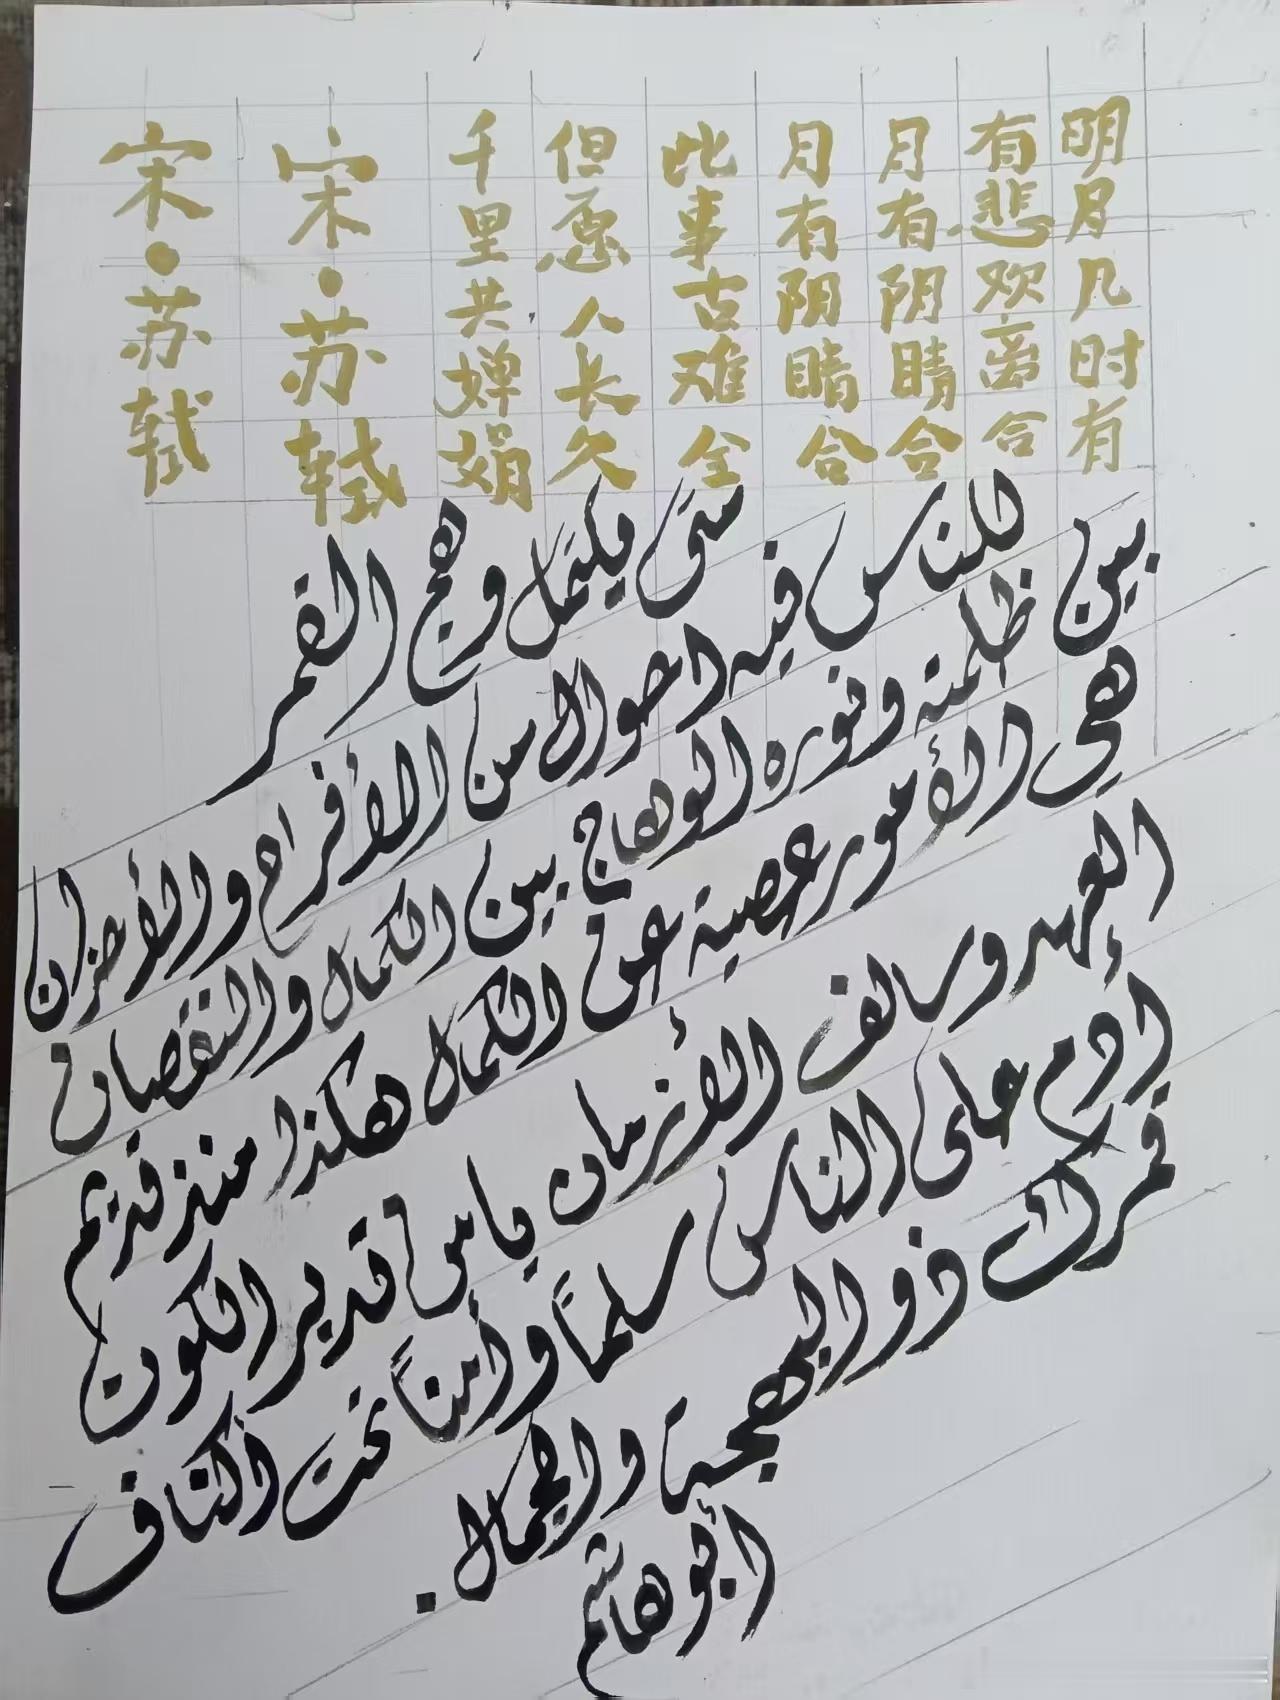 明月几时有
有悲欢离合
月有阴晴合
月有阴睛合
此事古难全
但愿人长久
千里共婵娟
宋·苏轼
宋·苏轼
متى يكتمل وهج القمر
للناس فيه احوال من الأفراح والأحزان
بين ظلمته ونوره الوهاج بين الكمال والنقصان
هي الأمور عصية عن الكمال هكذا منذ قديم
العهد وسالف الأزمان يا من قدير الكون
أدم على الناس سلماً وأمناً تحت أكناف
قمرك ذو البهجة والجمال.
أبو هاشم